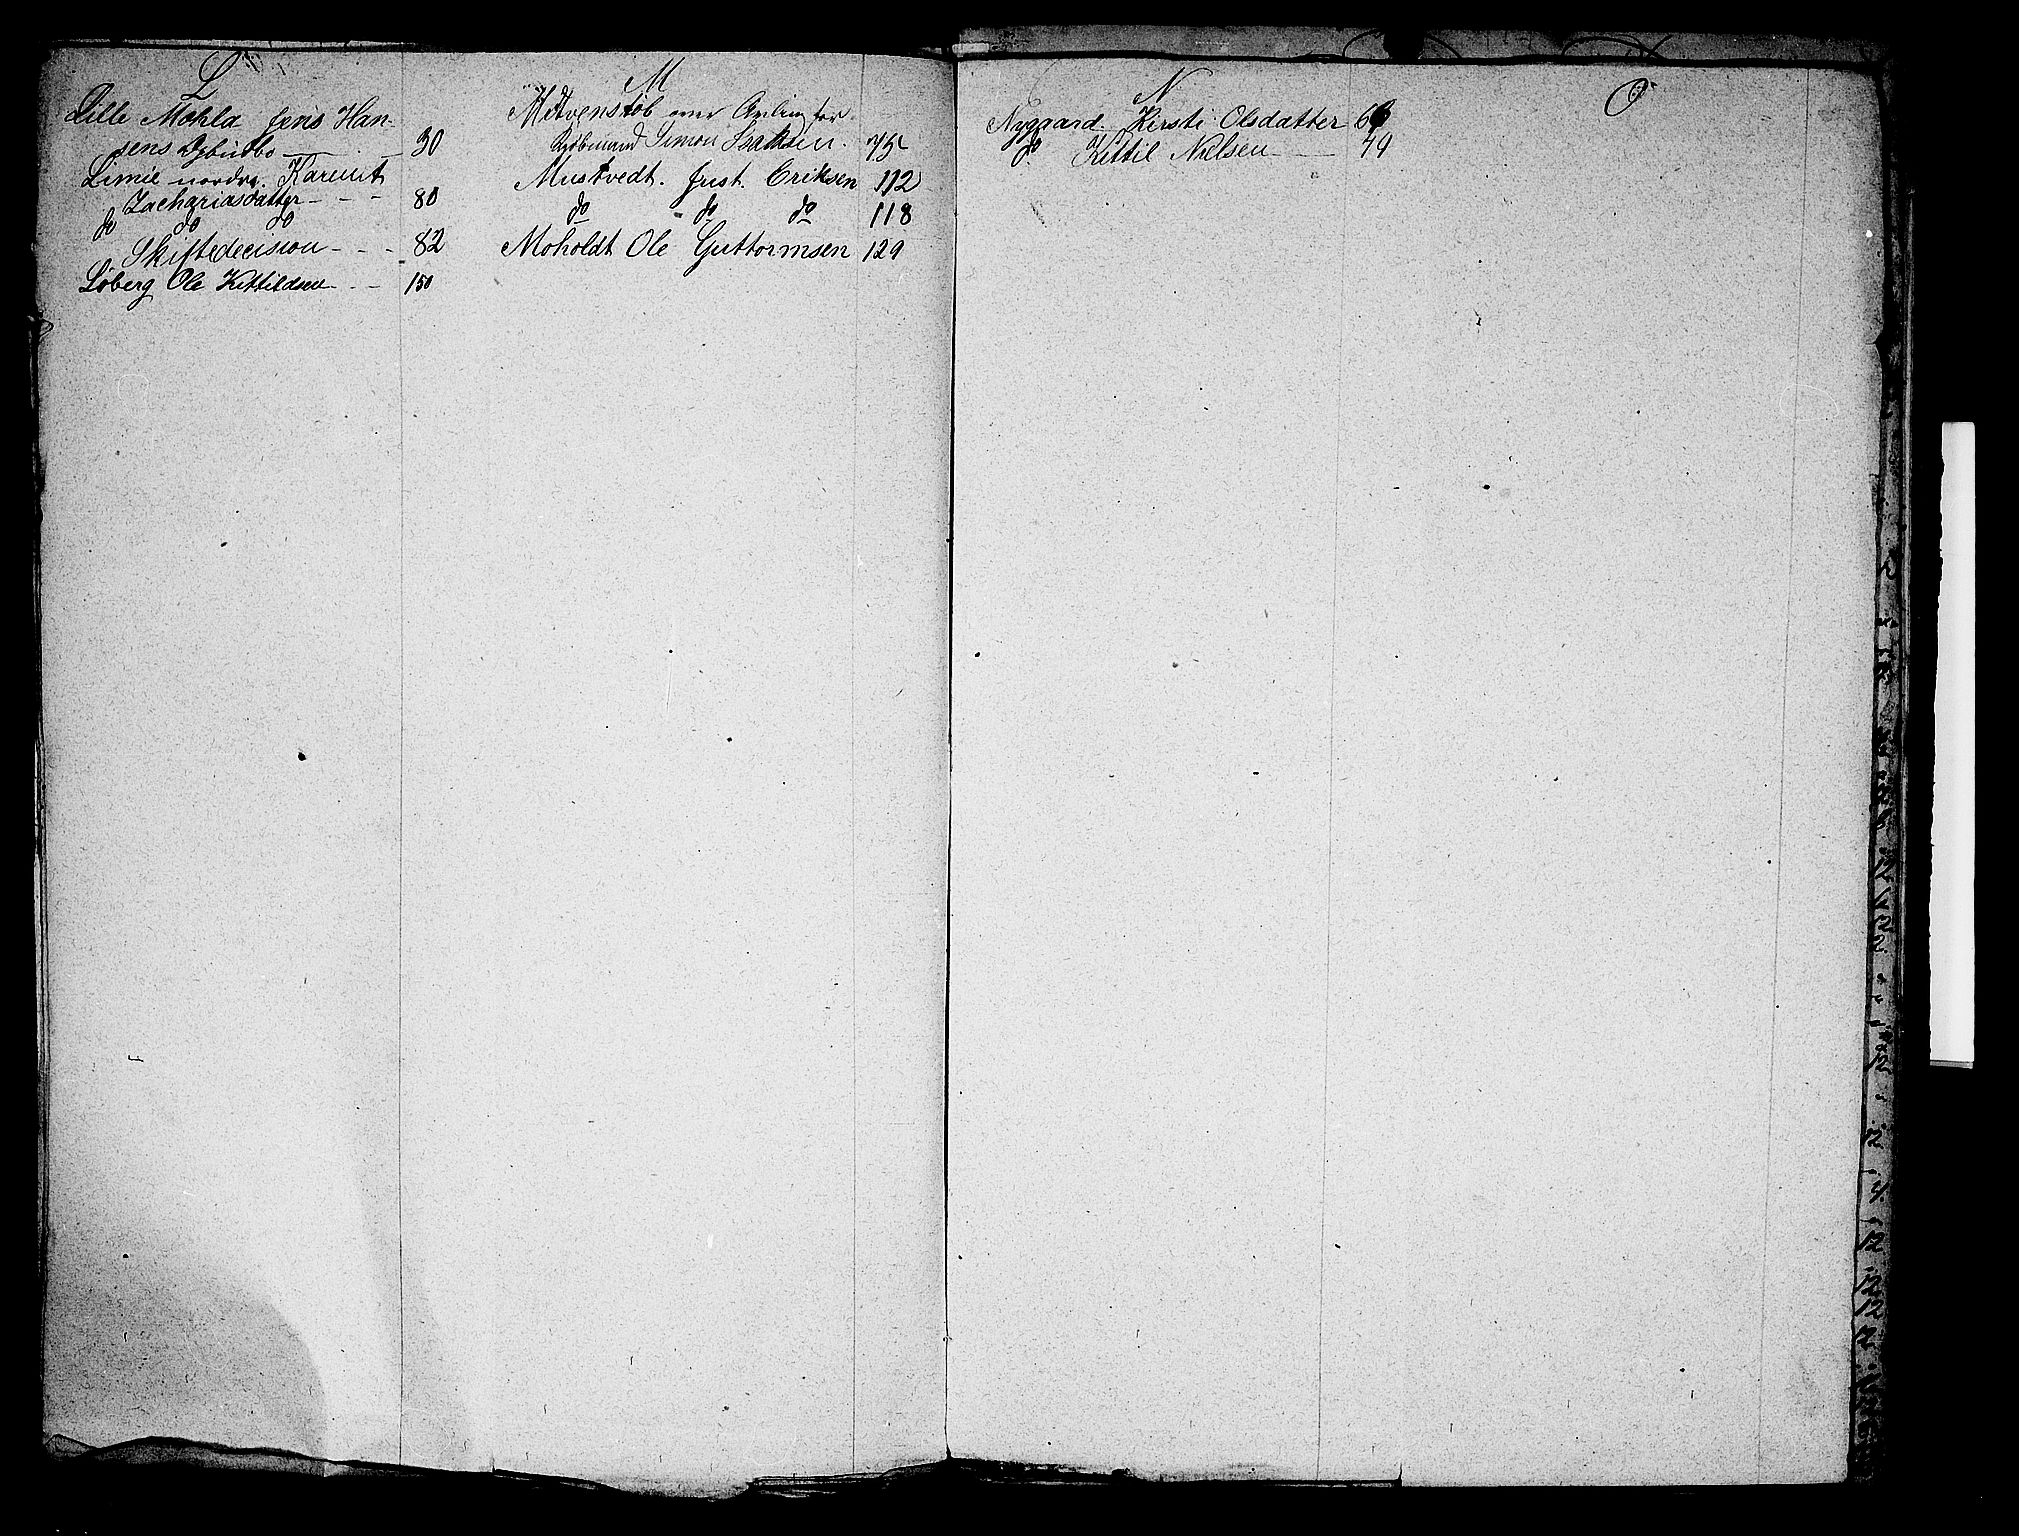 L
Lille Mohla Jens Han-
sens Dybudbo 30
Limie nordre. Karenit
Zachariasdatter - - - 80
do do do
Skiftedecision - - - 82
Loberg Ole Kittildsen - - - 150
M
over for
Kjøbmand Simon Isaksen. 75
Mustvedt. Just. Eriksen 112
do do do 118
Moholdt Ole Guttormsen 129
N
Nygaard. Kirsti Olsdatter 66
do Kittil Nielsen - 49
O